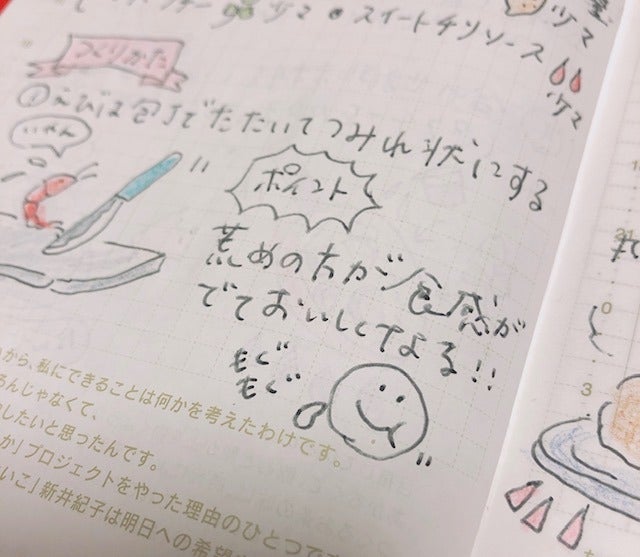 ツマ
ツマ●スイートチリソース
ツマ
つくりかた
①えびは包丁でたたいてつみれ状にする
いやん
ポイント
荒めの方が食感が
でておいしくなる!!
もぐ
もぐ
から、私にできることは何かを考えたわけです。
あんじゃなくて、
したいと思ったんです。
か」プロジェクトをやった理由のひとつで
いこ」新井紀子は明日への希望
0
3